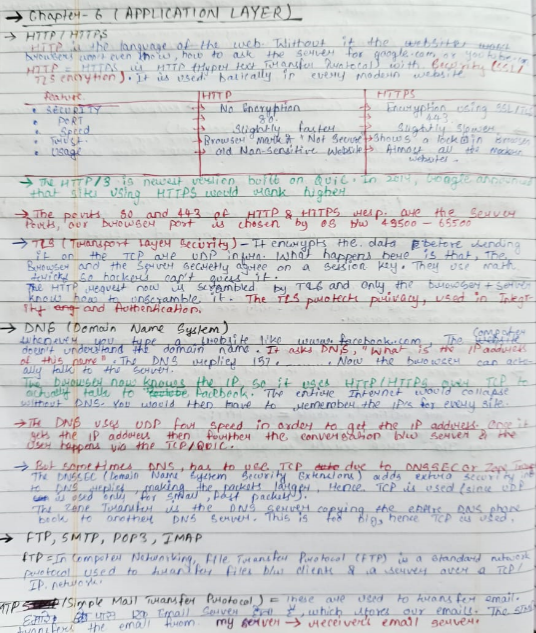 → Chapter-6 (APPLICATION LAYER)
→ HTTP/HTTPS
HTTP is the language of the web. Without it the websites
browsers won't even know, how to ask the server for google.com or
HTTP = HTTPS is HTTP (Hyper text Transfer Protocol) with Security (SSL/
TLS encrytion). It is used basically in every modern website.
Feature HTTP HTTPS
• SECURITY → No Encryption → Encryption using SSL/TLS
• PORT → 80. → 443
• Speed → Slightly faster → Slightly slower
• Trust → Browser mark it "Not Secure → Shows a lock in browser
• Usage → old Non-Sensitive website → Almost all the modern
websites.
→ The HTTP/3 is newest version built on QUIC. In 2014, Google announced
that site using HTTPS would rank higher
→ The ports, 80 and 443 of HTTP & HTTPS resp. are the server
Ports, our browser port is chosen by OS b/w 49500 - 65500
→ TLS (Transport Layer Security) - It encrypts the data before sending
it on the TCP are UDP What happens here is that, The
Browser and the Server secretly agree on a session key. They use math
tricks so hackers can't guess it.
The HTTP request now is scrambled by TLS and only the browser + server
know how to unscramble it. The TLS protects privacy, used in Integr-
ity and Authentication.
→ DNS (Domain Name System)
Whenever you type a website like www.facebook.com, The Computer
doesn't understand the domain name. It asks DNS, "What is the IP address
of this name". The DNS replies 157. . . . . . Now the browser can actu-
ally talk to the server.
The browser now knows the IP, so it uses HTTP/HTTPS over TCP to
actually talk to facebook. The entire Internet would collapse
without DNS. You would then have to remember the IPs for every site.
→ The DNS uses UDP for speed in order to get the IP address. Once it
gets the IP address then further the conversation b/w server & the
user happens via the TCP/QUIC.
→ But sometimes DNS, has to use TCP due to DNSSEC or Zone
The DNSSEC (Domain Name System Security Extensions) adds extra security
to DNS replies, making the packets larger, Hence TCP is used (since UDP
is used only for small, fast packets).
The Zone Transfer is the DNS server copying the entire DNS phone
book to another DNS server. This is too big, hence TCP is used.
→ FTP, SMTP, POP3, IMAP
FTP = In Computer Networking, File Transfer Protocol (FTP) is a standard network
protocol used to transfer files b/w clients & a server over a TCP/
IP network.
(Simple Mail Transfer Protocol) = these are used to transfer email.
Email Server, which stores our emails. The
transfers the email from my server → receivers email server.